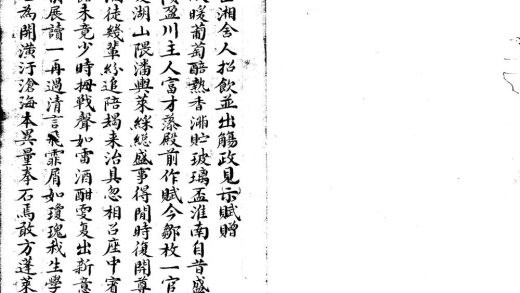 湘舍人招飲並出觴政見示賦贈
暖葡萄醅熱香滿貯玻璃盃淮南自昔盛
盈川主人富才藻殿前作賦今鄒枚一官
湖山隈潘輿萊綵總盛事得閒時復開尊
徒幾輩紛追陪朅来治具忽相召座中賓
未竟少時拇戰聲如雷酒酣更复出新意
展讀一再過清言飛霏屑如瓊瑰我生學
為開潢汙滄海本異量拳石焉敢方蓬萊